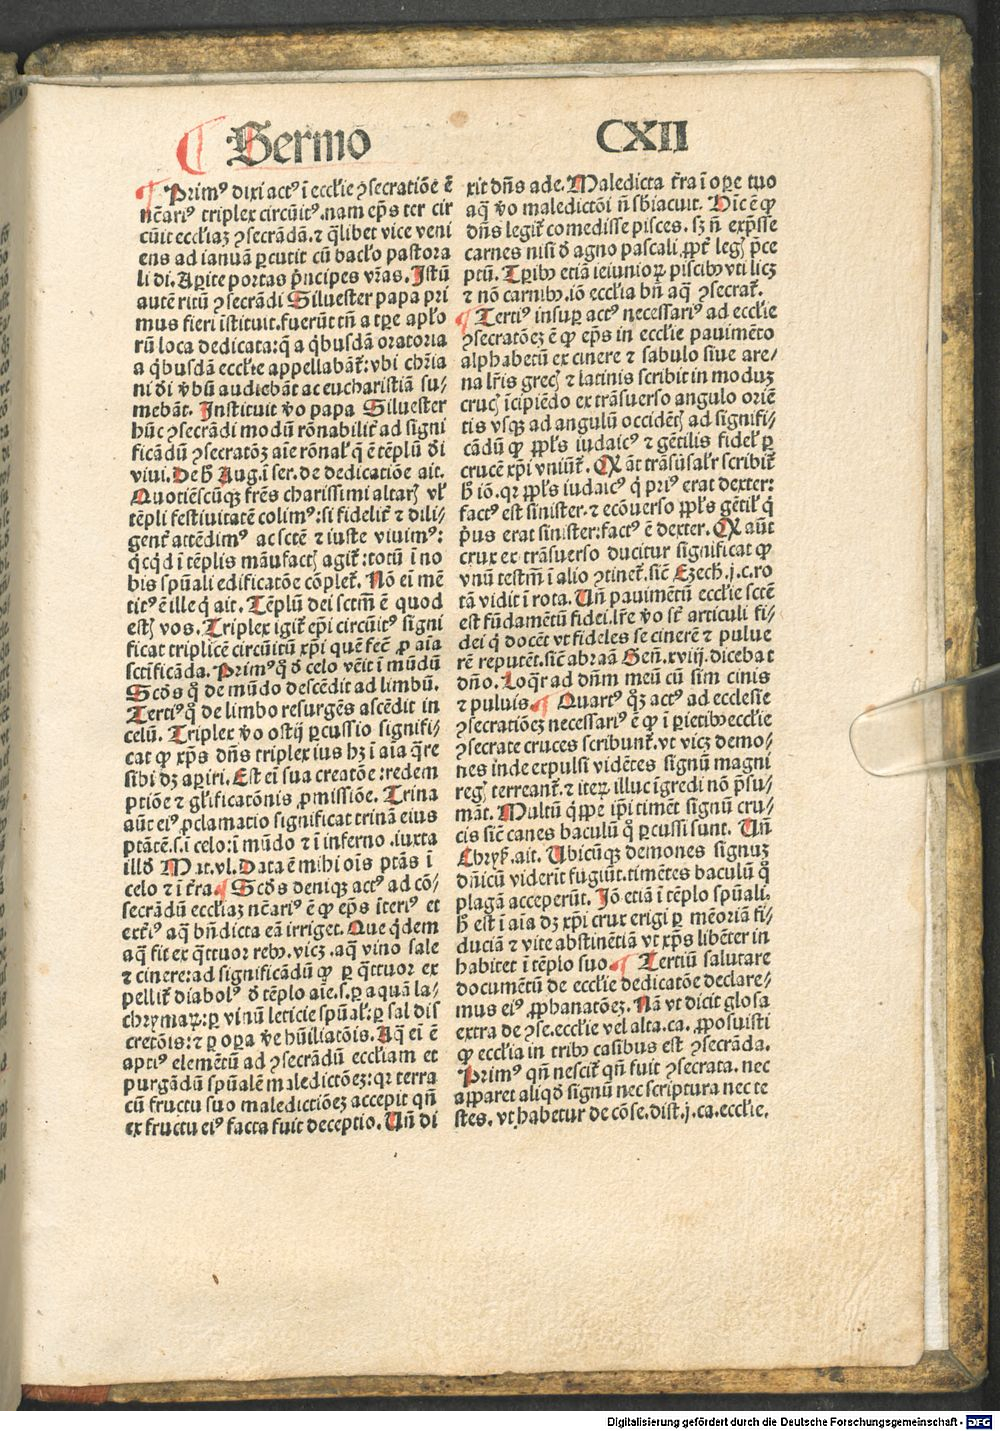 ¶ Sermo CXII
¶ Primꝰ dixi actꝰ ī eccl'ie ꝯsecratiōe ē
nēariꝰ triplex circūitꝰ. nam ep̄s ter cir
cūit eccl'iaꝫ ꝯsecrādā. ⁊ q̄libet vice veni
ens ad ianuā ꝑcutit cū bacl'o pastora
li di. Aꝑite portas pn̄cipes vr̄as. Istū
autē ritū ꝯsecrādi Siluester papa pri
mus fieri īstituit. fuerūt tn̄ a tꝑe apl'o
rū loca dedicata: q̄ a qͥbusdā oratoria
a qͥbusdā eccl'ie appellabāt᷑: vbi chr̄ia
ni d̄i v̓bū audiebāt ac eucharistiā su⸗
mebāt. Instituit v̓o papa Siluester
hūc ꝯsecrādi modū rōnabilit᷑ ad signi
ficādū ꝯsecratōeꝫ aīe rōnal' q̄ ē tēplū d̄i
viui. De h̓ Aug. ī ser. de dedicatiōe ait.
Quotiēscūqꝫ fr̄es charissimi altarꝭ vl'
tēpli festiuitatē colimꝰ: si fidelit᷑ ⁊ dili⸗
gent᷑ attēdimꝰ ac sctē ⁊ iuste viuimꝰ:
qͥcqͥd ī tēplis māufactꝭ agit᷑: totū ī no
bis spūali edificatōe cōplet᷑. Nō eī mē
titꝰ ē ille qͥ ait. Tēplū dei sctm̄ ē quod
estꝭ vos. Triplex igit᷑ ep̄i circūitꝰ signi
ficat triplicē circūitū xp̄i quē fec̄ ꝓ aīa
sctīficāda. Primꝰ qͦ d̓ celo vēit ī mūdū
Scd̓s qͦ de mūdo descēdit ad limbū.
Tertiꝰ qͦ de limbo resurgēs ascēdit in
celū. Triplex v̓o ostij ꝑcussio signifi⸗
cat ꝙ xp̄s dn̄s triplex ius hꝫ ī aīa q̄re
sibi dꝫ aꝑiri. Est eī sua creatōe: redem
ptiōe ⁊ gl'ificatōnis ꝓmissiōe. Trina
aūt eiꝰ ꝓclamatio significat trinā eius
ptātē. s. ī celo: ī mūdo ⁊ ī inferno. iuxta
illd̓ Mat. vl. Data ē mihi oīs ptās ī
celo ⁊ ī t᷑ra. ¶ Scd̓s deniqꝫ actꝰ ad cō⸗
secrādū eccl'iaꝫ nēariꝰ ē ꝙ ep̄s īteriꝰ et
ext᷑iꝰ aq̄ bn̄dicta eā irriget. Que qͥdem
aq̄ fit ex q̄ttuor rebꝰ. vicꝫ. aq̄ vino sale
⁊ cinere: ad significādū ꝙ ꝑ q̄ttuor ex
pellit᷑ diabolꝰ d̓ tēplo aīe. s. ꝑ aquā la⸗
chrymaꝝ: ꝑ vinū leticie spūal': ꝑ sal dis
cretōis: ⁊ ꝑ oꝑa v̓e hūiliatōis. Aq̄ eī ē
aptiꝰ elemētū ad ꝯsecrādū eccl'iam et
purgādū spūalē maledictōeꝫ: qꝛ terra
cū fructu suo maledictiōeꝫ accepit qn̄
ex fructu eiꝰ facta fuit deceptio. Un̄ di
xit dn̄s ade. Maledicta t᷑ra ī oꝑe tuo
aq̄ v̓o maledictōi n̄ sb̓iacuit. Hīc ē ꝙ
dn̄s legit᷑ comedisse pisces. sꝫ n̄ exp̄sse
carnes nisi d̓ agno pascali ꝓpt᷑ legꝭ p̄ce
ptū. Tꝑibꝰ etiā ieiunioꝝ piscibꝰ vti licꝫ
⁊ nō carnibꝰ. iō eccl'ia bn̄ aq̄ ꝯsecrat᷑.
¶ Tertiꝰ insuꝑ actꝰ necessariꝰ ad eccl'ie
ꝯsecratōeꝫ ē ꝙ ep̄s in eccl'ie pauimēto
alphabetū ex cinere ⁊ sabulo siue are⸗
na lr̄is grecꝭ ⁊ latinis scribit in moduꝫ
crucꝭ īcipiēdo ex trāsuerso angulo oriē
tis vsqꝫ ad angulū occidētꝭ ad signifi⸗
cādū ꝙ ppl's iudaicꝰ ⁊ gētilis fidel' ꝑ
crucē xp̄i vniūt᷑. Qꝙ āt trāsūsal'r scribit᷑
h̓ iō. qꝛ ppl's iudaicꝰ qͥ priꝰ erat dexter:
factꝰ est sinister. ⁊ ecōuerso ppl's gētil' qͥ
pͥus erat sinister: factꝰ ē dexter. Qꝙ aūt
crux ex trāsuerso ducitur significat ꝙ
vnū testm̄ ī alio ꝯtinet᷑. siē Ezech. j. c. ro
tā vidit ī rota. Un̄ pauimētū eccl'ie sctē
est fūdamētū fidei. lr̄e v̓o st̄ articuli fi⸗
dei qͥ docēt vt fideles se cinerē ⁊ pulue
rē reputēt. siē abraā Gen̄. xviij. dicebat
dn̄o. Loqͣr ad dn̄m meū cū sim cinis
⁊ puluis. ¶ Quartꝰ qͦꝫ actꝰ ad ecclesie
ꝯsecratiōeꝫ necessariꝰ ē ꝙ ī ꝑietibꝰ eccl'ie
ꝯsecrate cruces scribunt᷑. vt vicꝫ demo⸗
nes inde expulsi vidētes signū magni
regꝭ terreant᷑. ⁊ iteꝝ illuc īgredi nō p̄su⸗
māt. Multū qͥppe ip̄i timēt signū cru⸗
cis siē canes baculū qͦ ꝑcussi sunt. Un̄
Chrys̓. ait. Ubicūqꝫ demones signuꝫ
dn̄icū viderīt fugiūt. timētes baculū qͦ
plagā acceperūt. Iō etiā ī tēplo spūali.
h̓ est ī aīa dꝫ xp̄i crux erigi ꝑ mēoriā fi⸗
duciā ⁊ vite abstinētiā vt xp̄s libēter in
habitet ī tēplo suo. ¶ Tertiū salutare
documētū de eccl'ie dedicatōe declare⸗
mus eiꝰ ꝓphanatōeꝫ. Nā vt dicit glosa
extra de ꝯse. eccl'ie vel alta. ca. ꝓposuisti
ꝙ eccl'ia in tribꝰ casibus est ꝯsecrāda.
Primꝰ qn̄ nescit᷑ qn̄ fuit ꝯsecrata. nec
apparet aliqd̓ signū nec scriptura nec te
stes. vt habetur de cōse. dist. j. ca. eccl'ie.
Digitalisierung gefördert durch die Deutsche Forschungsgemeinschaft - DFG